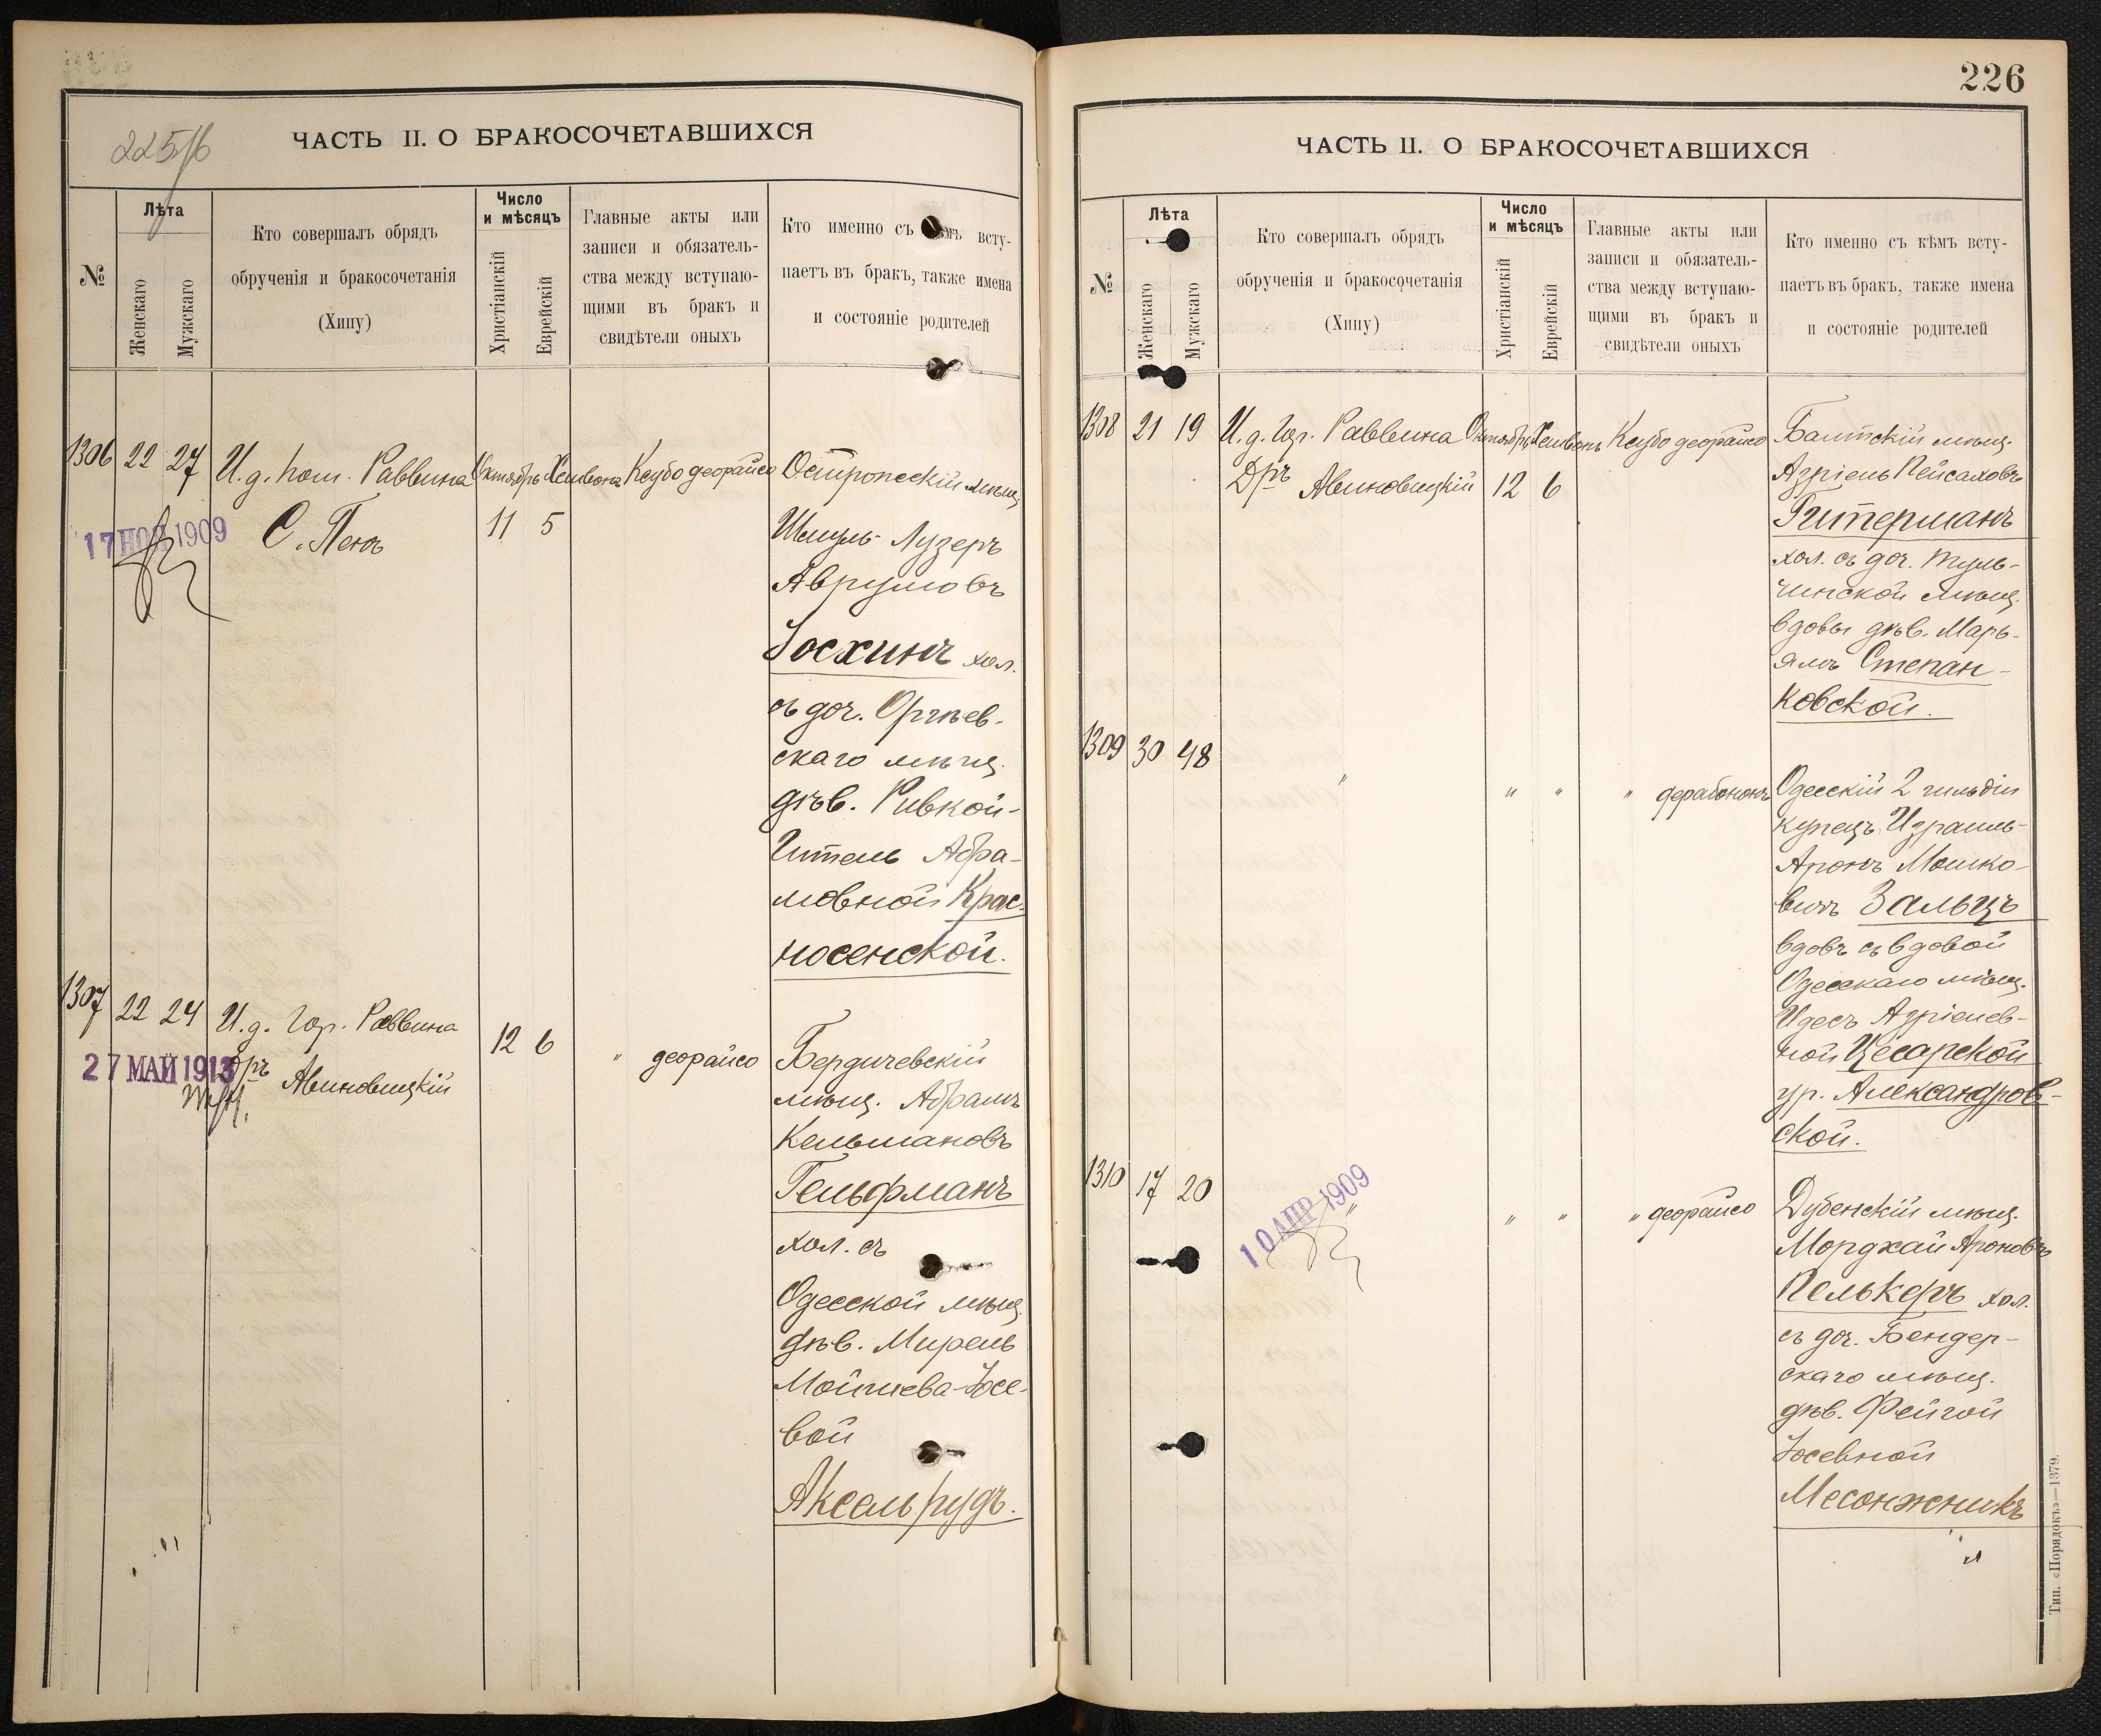 225/б
ЧАСТЬ II. О БРАКОСОЧЕТАВШИХСЯ
№
Лѣта
Женскаго
Мужскаго
Кто совершалъ обрядъ
обрученія и бракосочетанія
(Хипу)
Число
и мѣсяцъ
Христіанскій
Еврейскій
Главные акты или
записи и обязатель-
ства между вступаю-
щими въ бракъ и
свидѣтели оныхъ
Кто именно съ всту-
паетъ въ бракъ, также имена
и состояніе родителей
1306 22 27 И. д. пом. Раввина Октябрь Хешвона Ксубо деорайсо Остропескій мѣщ.
17 НОЯ 1909
С. Пенъ
11 5
Шмуль-Лузеръ
Аврумовъ
Іосхинъ хол.
съ доч. Оргѣев-
скаго мѣщ.
дѣв. Ривкой-
Гитель Абра-
мовной Крас-
носенской.
1307 22 24 И. д. Гор. Раввина
27 МАЙ 1913
Дръ Авиновицкій
12 6
" деорайсо
Бердичевскій
мѣщ. Абрамъ
Кельмановъ
Гельфманъ
хол. съ
Одесской мѣщ.
дѣв. Мирель
Мойшева-Іосе-
вой
Аксельрудъ.
226
ЧАСТЬ II. О БРАКОСОЧЕТАВШИХСЯ
№
Лѣта
Женскаго
Мужскаго
Кто совершалъ обрядъ
обрученія и бракосочетанія
(Хипу)
Число
и мѣсяцъ
Христіанскій
Еврейскій
Главные акты или
записи и обязатель-
ства между вступаю-
щими въ бракъ и
свидѣтели оныхъ
Кто именно съ кѣмъ всту-
паетъ въ бракъ, также имена
и состояніе родителей
1308 21 19 И. д. Гор. Раввина Октябрь Хешвонъ Ксубо деорайсо
Дръ Авиновицкій 12 6
Балтскій мѣщ.
Азріель Пейсаховъ
Гитерманъ
хол. съ доч. Туль-
чинской мѣщ.
вдовы дѣв. Марь-
ямъ Степан-
ковской.
1309 30 48
" " " " дерабононъ
Одесскій 2 гильдіи
купецъ Израиль-
Аронъ Мошко-
вичъ Зальцъ
вдовъ съ вдовой
Одесскаго мѣщ.
Идесъ Азріелев-
ной Цесарской
ур. Александров-
ской.
1310 17 20
10 АПР 1909
" " " " деорайсо
Дубенскій мѣщ.
Мордхай Ароновъ
Пелькеръ хол.
съ доч. Бендер-
скаго мѣщ.
дѣв. Фейгой
Іосевной
Месонжникъ
Тип. «Порядокъ»—1379.